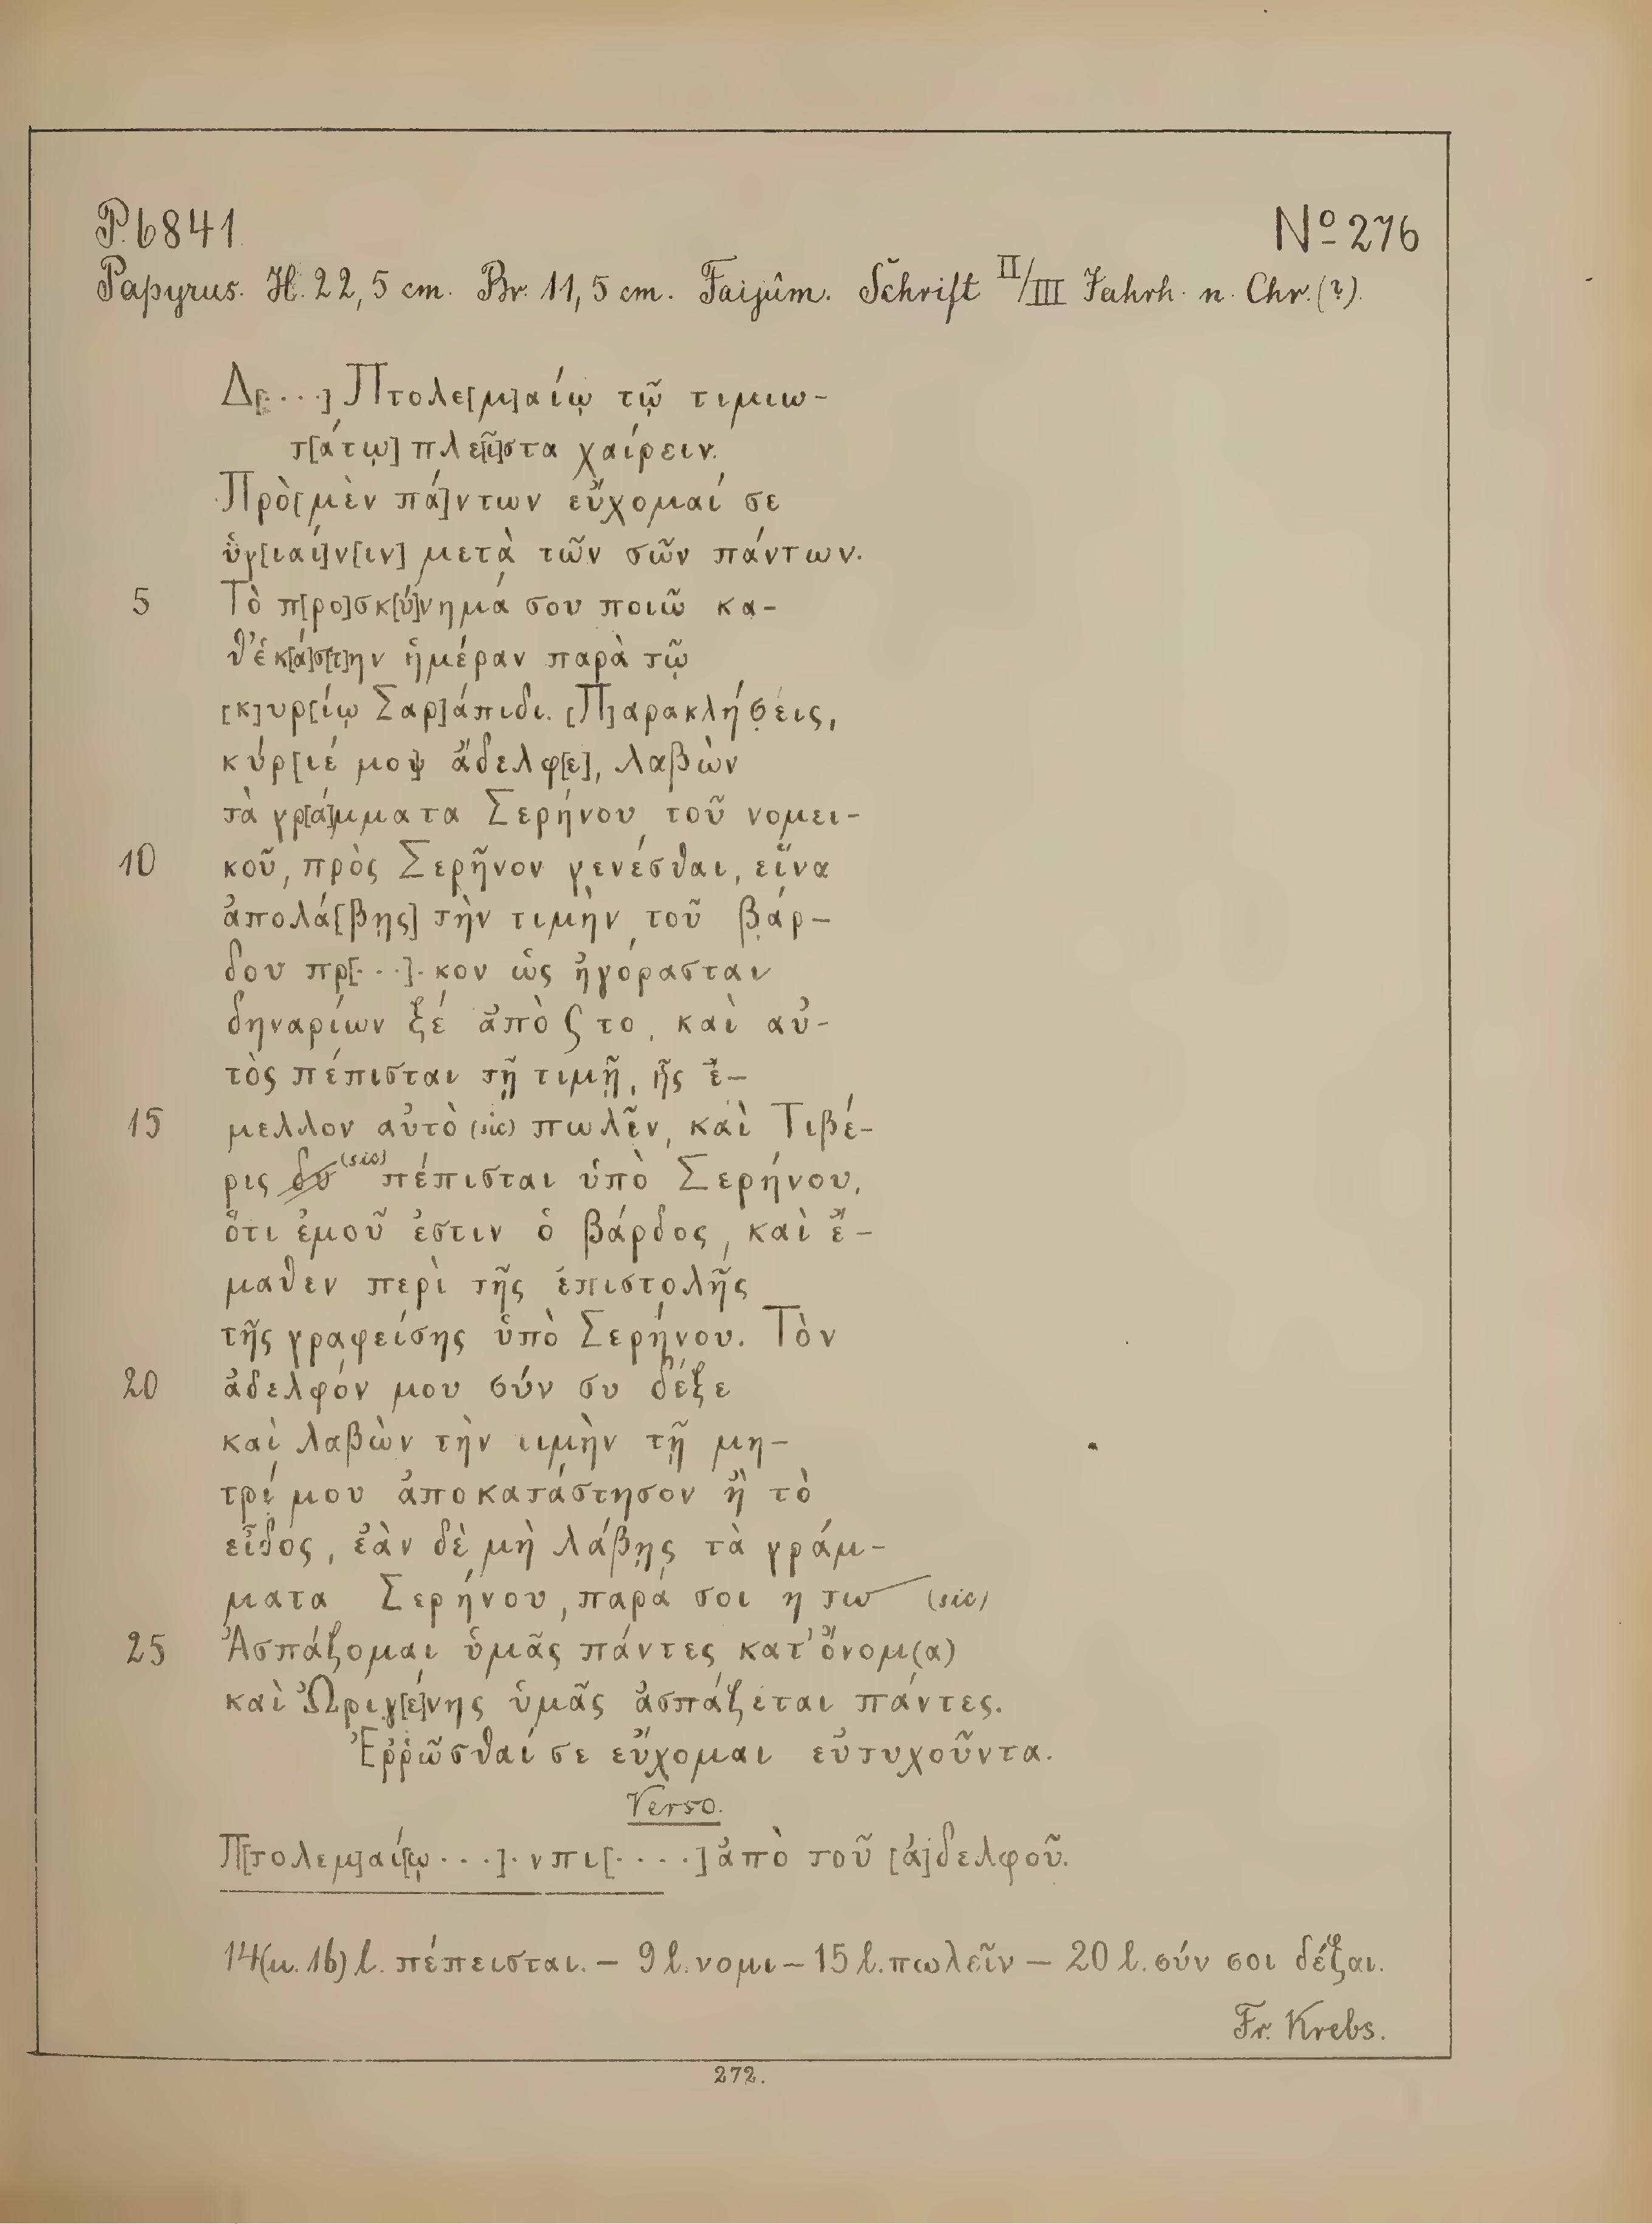 P. 6841. Nº 276
Papyrus. H. 22,5 cm. Br. 11,5 cm. Faijûm. Schrift II/III Jahrh. n. Chr. (?).
Δ[ε···] Πτολε[μ]αίῳ τῷ τιμιω-
τ[άτῳ] πλε[ῖ]στα χαίρειν.
Πρὸ [μὲν πά]ντων εὔχομαί σε
ὑγ[ιαί]ν[ιν] μετὰ τῶν σῶν πάντων.
5 Τὸ π[ρο]σκ[ύ]νημά σου ποιῶ κα-
θ' ἑκ[ά]σ[τ]ην ἡμέραν παρὰ τῷ
[κ]υρ[ίῳ Σαρ]άπιδι. [Π]αρακληθείς,
κύρ[ιέ μο]υ ἄδελφ[ε], λαβὼν
τὰ γρ[ά]μματα Σερήνου τοῦ νομει-
10 κοῦ, πρὸς Σερῆνον γενέσθαι, εἵνα
ἀπολά[βῃς] τὴν τιμὴν τοῦ βάρ-
δου πρ[···]·κον ὡς ἠγόρασται
δηναρίων ξέ ἀπὸ ϛ το, καὶ αὐ-
τὸς πέπισται τῇ τιμῇ, ἧς ἔ-
15 μελλον αὐτὸ (sic) πωλῖν, καὶ Τιβέ-
ρις δυ (sic) πέπισται ὑπὸ Σερήνου,
ὅτι ἐμοῦ ἐστιν ὁ βάρδος, καὶ ἔ-
μαθεν περὶ τῆς ἐπιστολῆς
τῆς γραφείσης ὑπὸ Σερήνου. Τὸν
20 ἀδελφόν μου σύν συ δέξε
καὶ λαβὼν τὴν τιμὴν τῇ μη-
τρί μου ἀποκατάστησον ἢ τὸ
εἶδος, ἐὰν δὲ μὴ λάβῃς τὰ γράμ-
ματα Σερήνου, παρά σοι η τω (sic)
25 Ἀσπάζομαι ὑμᾶς πάντες κατ' ὄνομ(α)
καὶ Ὠριγ[έ]νης ὑμᾶς ἀσπάζεται πάντες.
Ἐρρῶσθαί σε εὔχομαι εὐτυχοῦντα.
Verso.
Π[τολεμ]αί[ῳ ···]·νπι[····] ἀπὸ τοῦ [ἀ]δελφοῦ.
14 (u. 16) l. πέπεισται. – 9 l. νομι – 15 l. πωλεῖν – 20 l. σύν σοι δέξαι.
Fr. Krebs.
272.